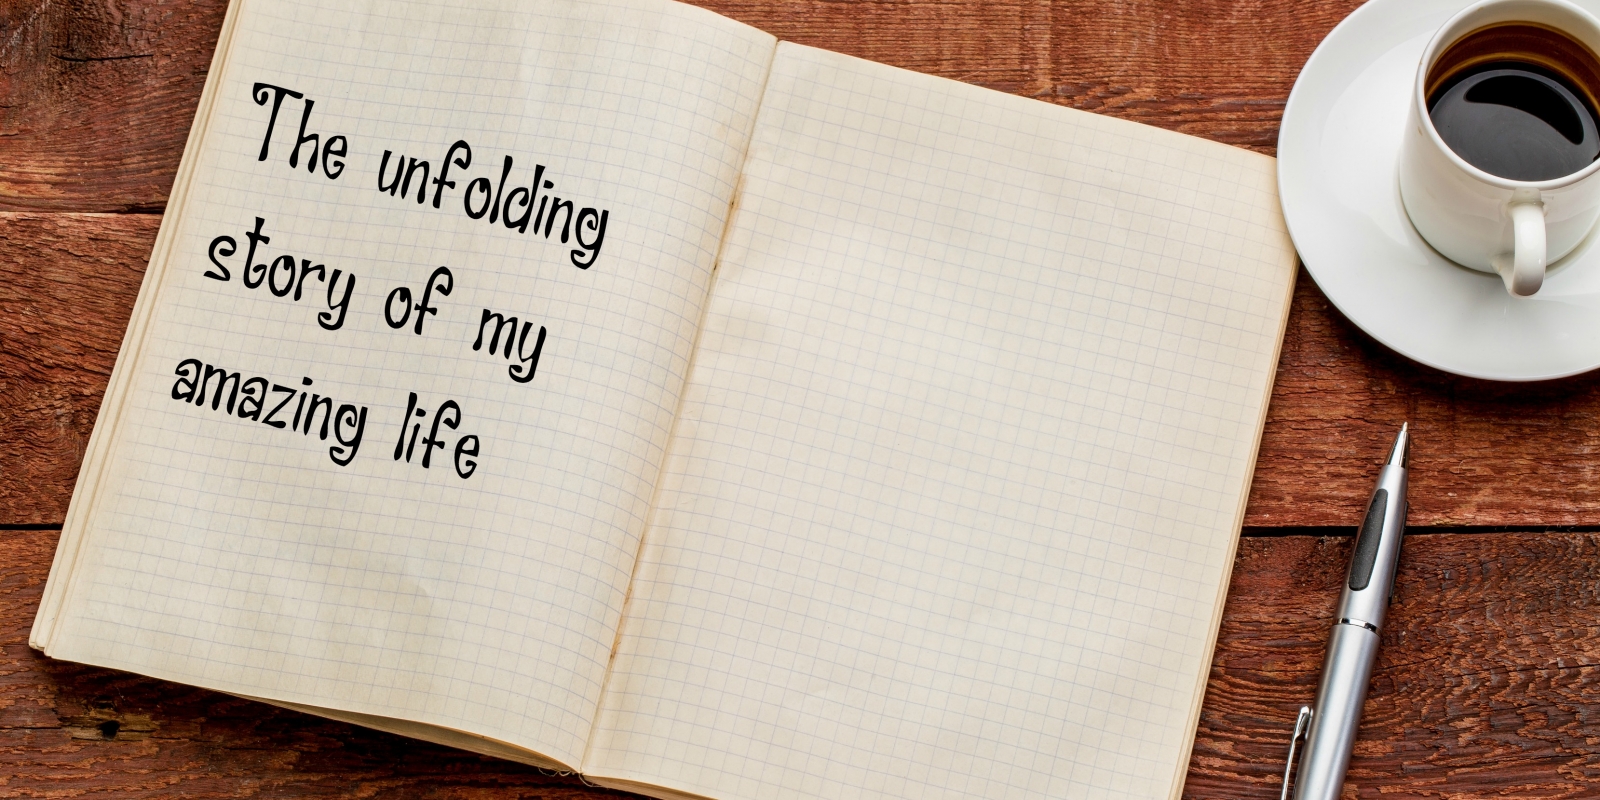 The unfolding
story of my
amazing life